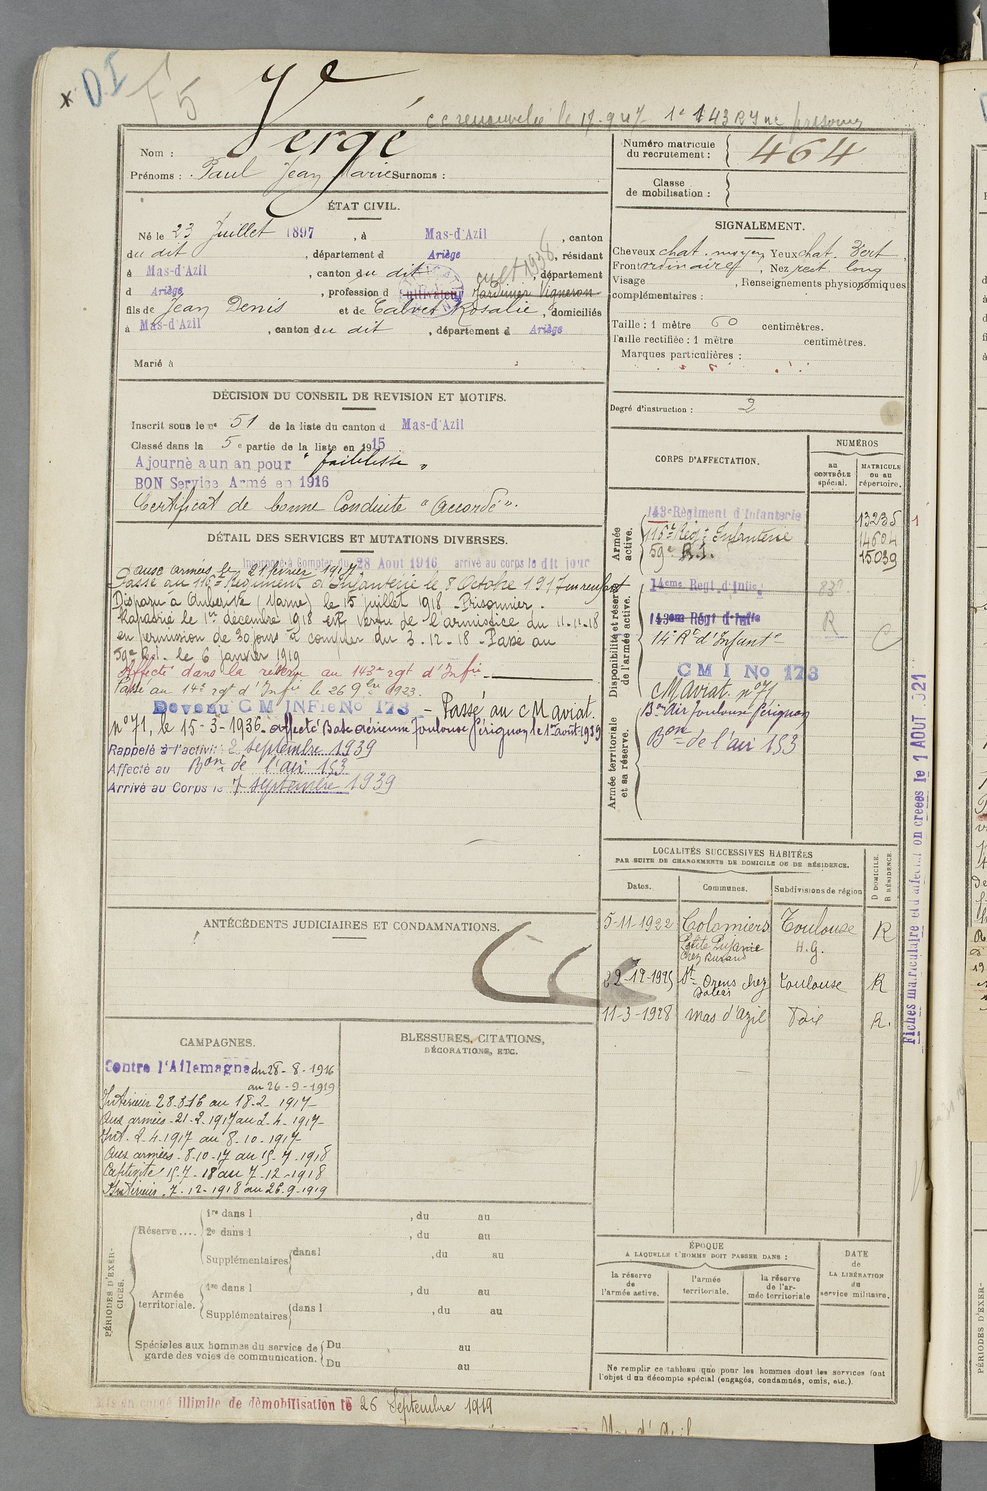 x DI F5
Nom : Vergé
Prénoms : Paul Jean Marie Surnoms :
Numéro matricule du recrutement : 464
Classe de mobilisation :
ÉTAT CIVIL.
Né le 23 Juillet 1897, à Mas-d'Azil, canton
du dit, département d Ariège, résidant
à Mas-d'Azil, canton du dit, département
d Ariège, profession d Cultivateur Jardinier Vigneron cult 1938
fils de Jean Denis et de Calvet Rosalie, domiciliés
à Mas-d'Azil, canton du dit, département d Ariège
Marié à
SIGNALEMENT.
Cheveux chat. moyen Yeux chat. Vert
Front ordinaire, Nez rect. long
Visage , Renseignements physionomiques
complémentaires :
Taille : 1 mètre 60 centimètres.
Taille rectifiée : 1 mètre centimètres.
Marques particulières :
Degré d'instruction : 2
DÉCISION DU CONSEIL DE REVISION ET MOTIFS.
Inscrit sous le n° 51 de la liste du canton d Mas-d'Azil
Classé dans la 5e partie de la liste en 1915
Ajourné a un an pour "faiblesse"
BON Service Armé en 1916
Certificat de bonne Conduite "Accordé".
DÉTAIL DES SERVICES ET MUTATIONS DIVERSES.
Incorporé à Compter du 28 Aout 1916 arrivé au corps le dit jour
aux armées le 21 février 1917
Passé au 116e Régiment d'Infanterie le 8 Octobre 1917 en renfort
Disparu à Auberive (Marne) le 15 juillet 1918 - Prisonnier -
Rapatrié le 1er décembre 1918 en vertu de l'armistice du 11-11-18
en permission de 30 jours à compter du 3-12-18 - Passé au
59e R.I. le 6 janvier 1919
Affecté dans la réserve au 143e rgt d'Infie
Passé au 14e rgt d'Infie le 26 9bre 1923.
Devenu C M INFie No 173 - Passé au C M aviat.
n° 71, le 15-3-1936 - affecté Base aérienne Toulouse Pérignon, le 1er août 1939
Rappelé à l'activité 2 septembre 1939
Affecté au Bon de l'air 153
Arrivé au Corps le 7 septembre 1939
CORPS D'AFFECTATION.
NUMÉROS
au CONTRÔLE spécial.
MATRICULE ou au répertoire.
Armée active.
143e Régiment d'Infanterie 13235
116e Rég t Infanterie 14604
59e R.I. 15039
Disponibilité et réserve de l'armée active.
14eme Regt d'Infie
143eme Regt d'Infie R
14e Rt d'Infantie
C M I No 173
C M Aviat. n° 71
Bon Air Toulouse Pérignon
Bon de l'air 153
Armée territoriale et sa réserve.
LOCALITÉS SUCCESSIVES HABITÉES
PAR SUITE DE CHANGEMENTS DE DOMICILE OU DE RÉSIDENCE.
Dates. Communes. Subdivisions de région D DOMICILE. R RÉSIDENCE
5-11-1922 Colomiers Toulouse H.G. R
29-12-1925 St Orens chez Toulouse R
11-3-1928 Mas d'Azil Foix R.
Fiches matriculaire et d'affectation creees le 1 AOUT 1921
ANTÉCÉDENTS JUDICIAIRES ET CONDAMNATIONS.
CAMPAGNES.
Contre l'Allemagne du 28-8-1916
au 26-9-1919
Intérieur 28.8.16 au 18-2-1917
Aux armées - 21-2-1917 au 2-4-1917
Int. 2-4-1917 au 8-10-1917
Aux armées - 8-10-17 au 15-7-1918
Captivité 15-7-18 au 7-12-1918
Intérieur 7-12-1918 au 26-9-1919
BLESSURES, CITATIONS,
DÉCORATIONS, ETC.
PÉRIODES D'EXERCICES.
Réserve....
1re dans l , du au
2e dans l , du au
Supplémentaires dans l , du au
Armée territoriale.
1re dans l , du au
Supplémentaires dans l , du au
Spéciales aux hommes du service de garde des voies de communication.
Du au
Du au
ÉPOQUE
A LAQUELLE L'HOMME DOIT PASSER DANS :
la réserve de l'armée active.
l'armée territoriale.
la réserve de l'armée territoriale
DATE de LA LIBÉRATION du service militaire.
Ne remplir ce tableau que pour les hommes dont les services font
l'objet d'un décompte spécial (engagés, condamnés, omis, etc.).
Mis en congé illimité de démobilisation le 26 Septembre 1919